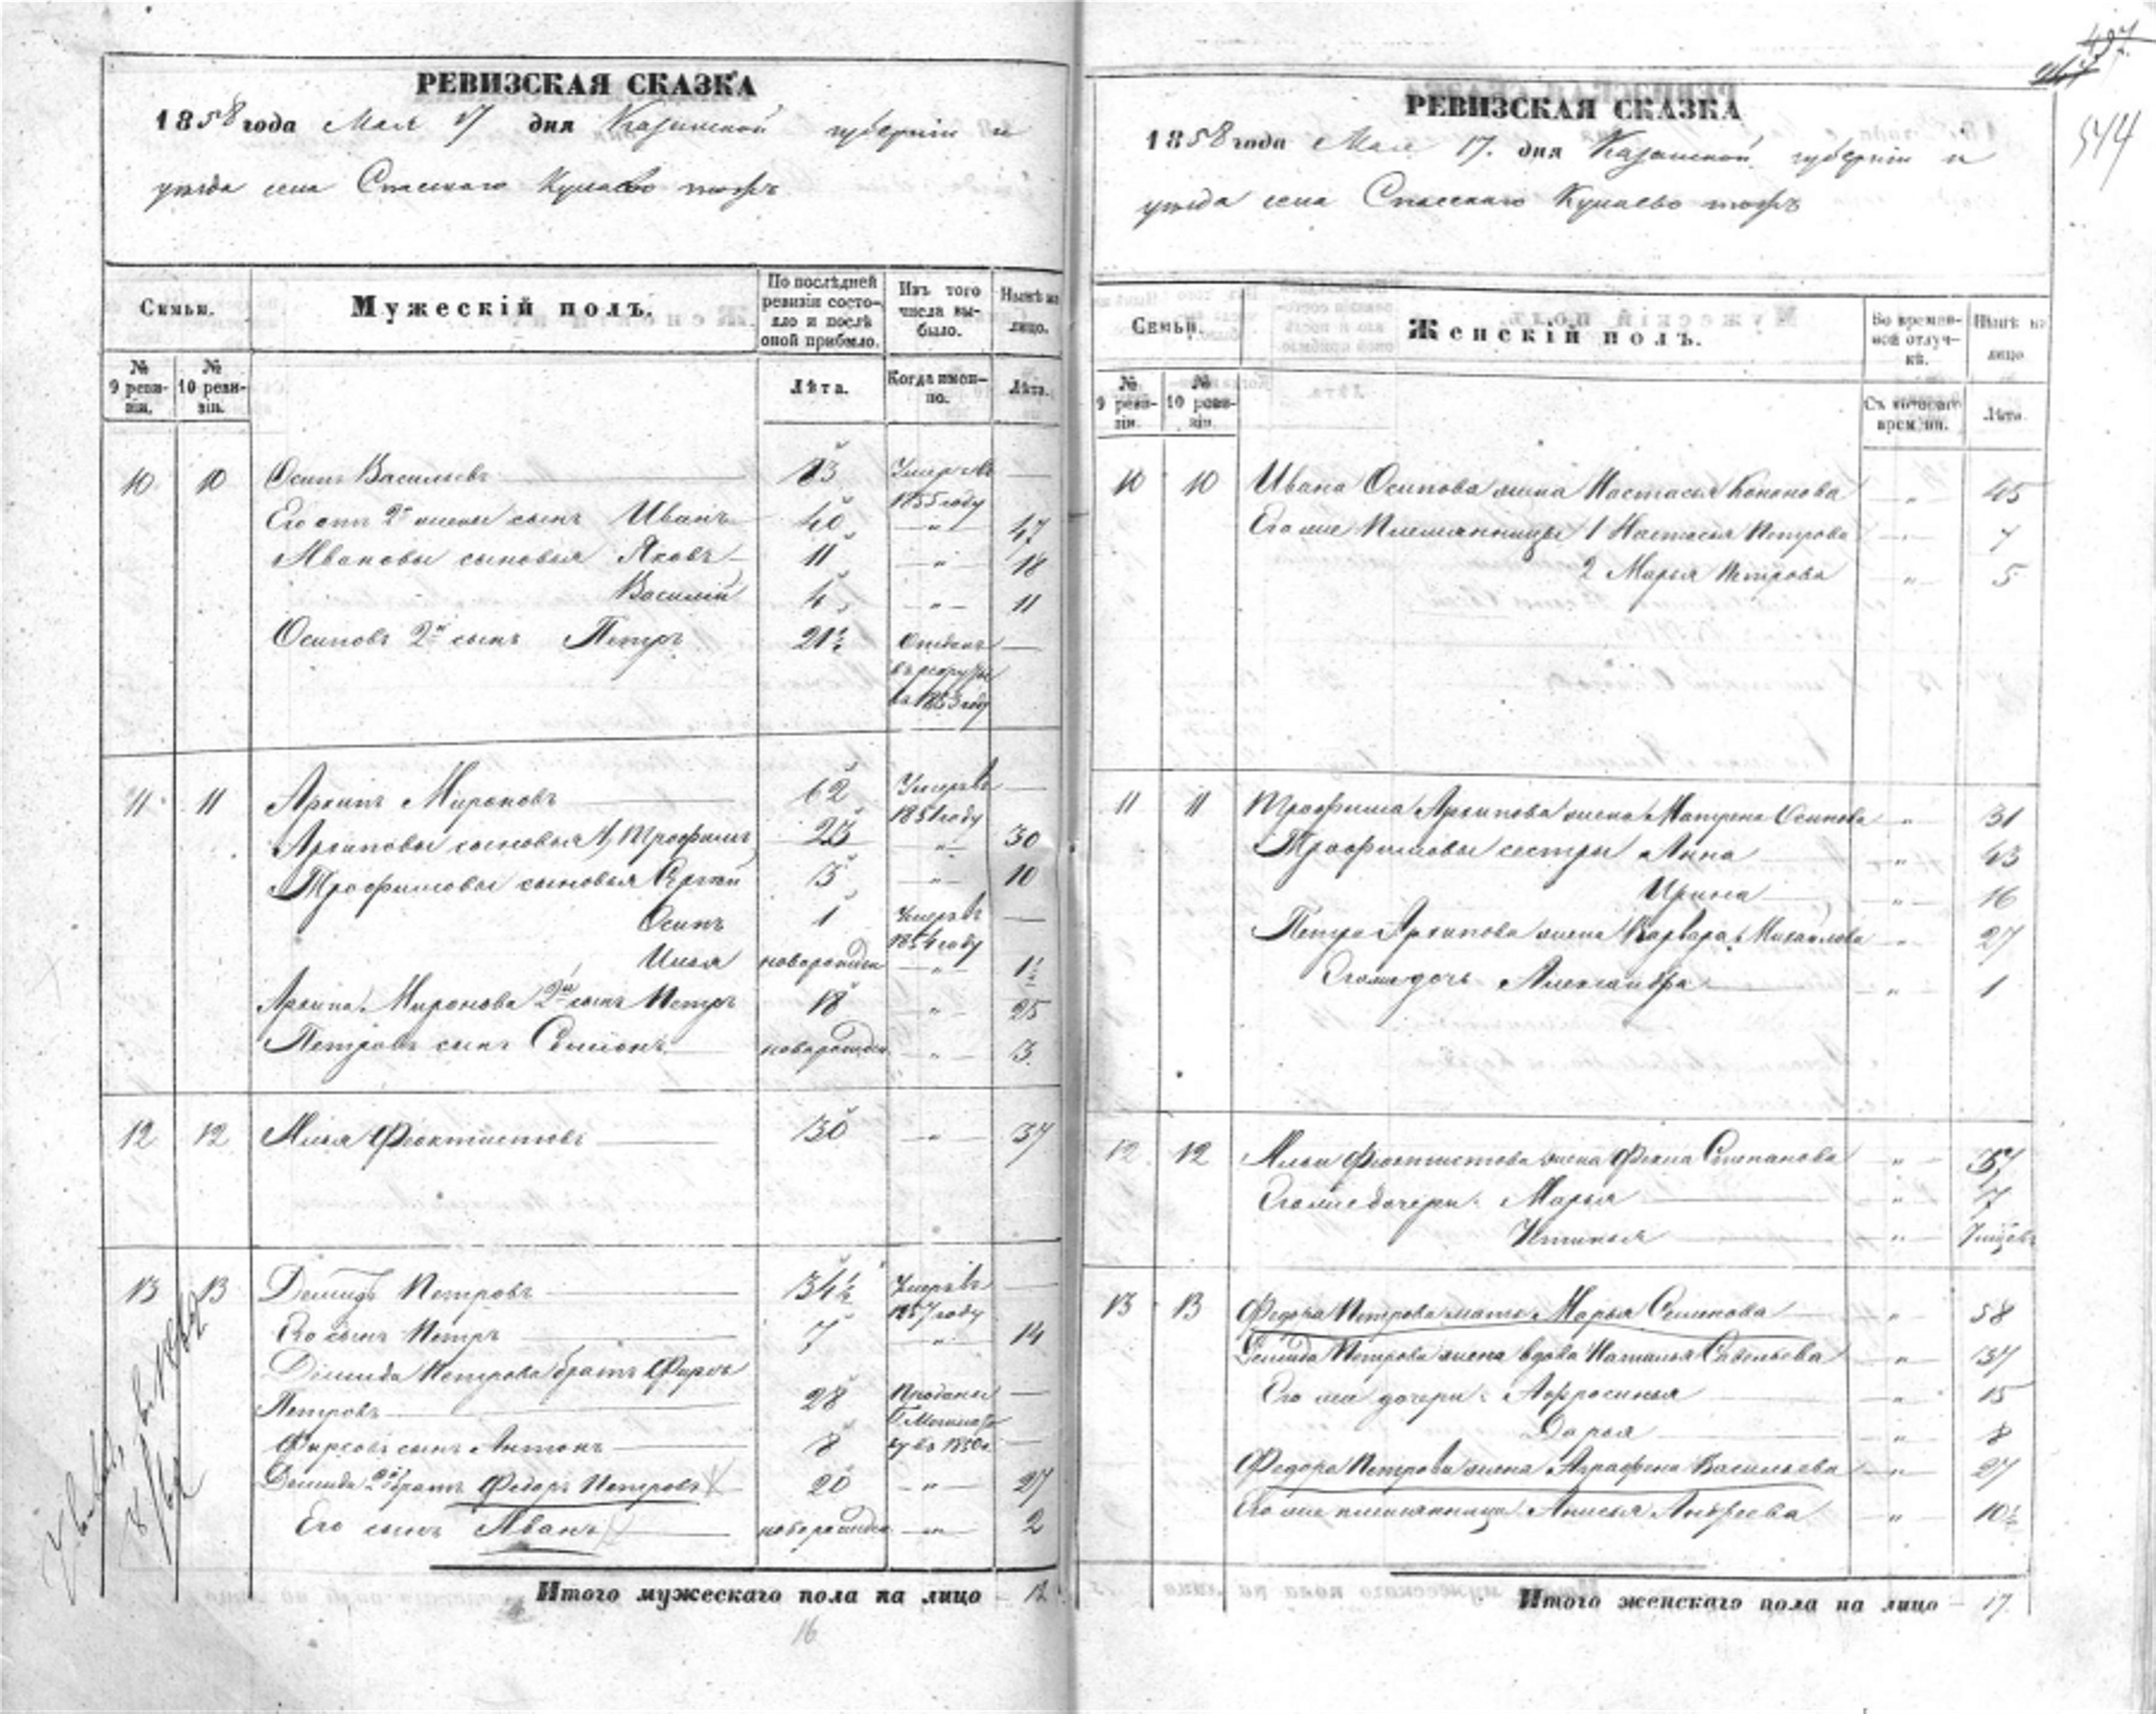 497.
544
РЕВИЗСКАЯ СКАЗКА
1858 года Мая 17 дня Казанской губернiи и
уѣзда села Спаскаго Кулаево тожъ
Семьи.
Мужескiй полъ.
По послѣдней ревизiи состояло и послѣ оной прибыло.
Изъ того числа выбыло.
Нынѣ на лицо.
№ 9 ревизiи.
№ 10 ревизiи.
Лѣта.
Когда именно.
Лѣта.
10 10 Осипъ Васильевъ 73 Умеръ въ 1855 году —
Его отъ 2й жены сынъ Иванъ 40 „ 47
Ивановы сыновья Яковъ 11 „ 18
Василiй 4 „ 11
Осиповъ 2й сынъ Петръ 21½ Отданъ въ рекруты въ 1853 году —
11 11 Архипъ Мироновъ 62 Умеръ въ 1851 году —
Архиповы сыновья 1, Трофимъ 23 „ 30
Трофимовы сыновья Сергѣй 3 „ 10
Осипъ 1 Умеръ въ 1854 году —
Илья новорожден „ 1½
Архипа Миронова 2й сынъ Петръ 18 „ 25
Петровъ сынъ Семионъ новорожден „ 3
12 12 Илья Феоктистовъ 30 „ 37
13 13 Демидъ Петровъ 34½ Умеръ въ 1857 году —
Его сынъ Петръ 7 „ 14
Демида Петрова братъ Фирсъ
Петровъ 28 —
Фирсовъ сынъ Антонъ 8 въ 1850 г. —
Демида 2й братъ Федоръ Петровъ 20 „ 27
Его сынъ Иванъ новорожден „ 2
Итого мужескаго пола на лицо 12
16
РЕВИЗСКАЯ СКАЗКА
1858 года Мая 17. дня Казанской губернiи и
уѣзда села Спасскаго Кулаево тожъ
Семьи.
Женскiй полъ.
Во временной отлучкѣ.
Нынѣ на лицо
№ 9 ревизiи.
№ 10 ревизiи.
Съ котораго времени.
Лѣта.
10 10 Ивана Осипова жена Настасья Кононова „ 45
Его же Племянницы 1 Настасья Петрова „ 7
2 Марья Петрова „ 5
11 11 Трофима Архипова жена Матрена Осипова „ 31
Трофимовы сестры Анна „ 43
Ирина „ 16
Петра Архипова жена Варвара Михайлова „ 27
Его же дочь Александра „ 1
12 12 Ильи Феоктистова жена Фекла Степанова „ 37
Его же дочери Марья „ 7
Устинья „
13 13 Федора Петрова мать Марья Семенова „ 58
Демида Петрова жена вдова Наталья Савельева „ 37
Его же дочери Афросинья „ 15
Дарья „ 8
Федора Петрова жена Аграфена Васильева „ 27
Его же племянница Анисья Андреева „ 10½
Итого женскаго пола на лицо 17